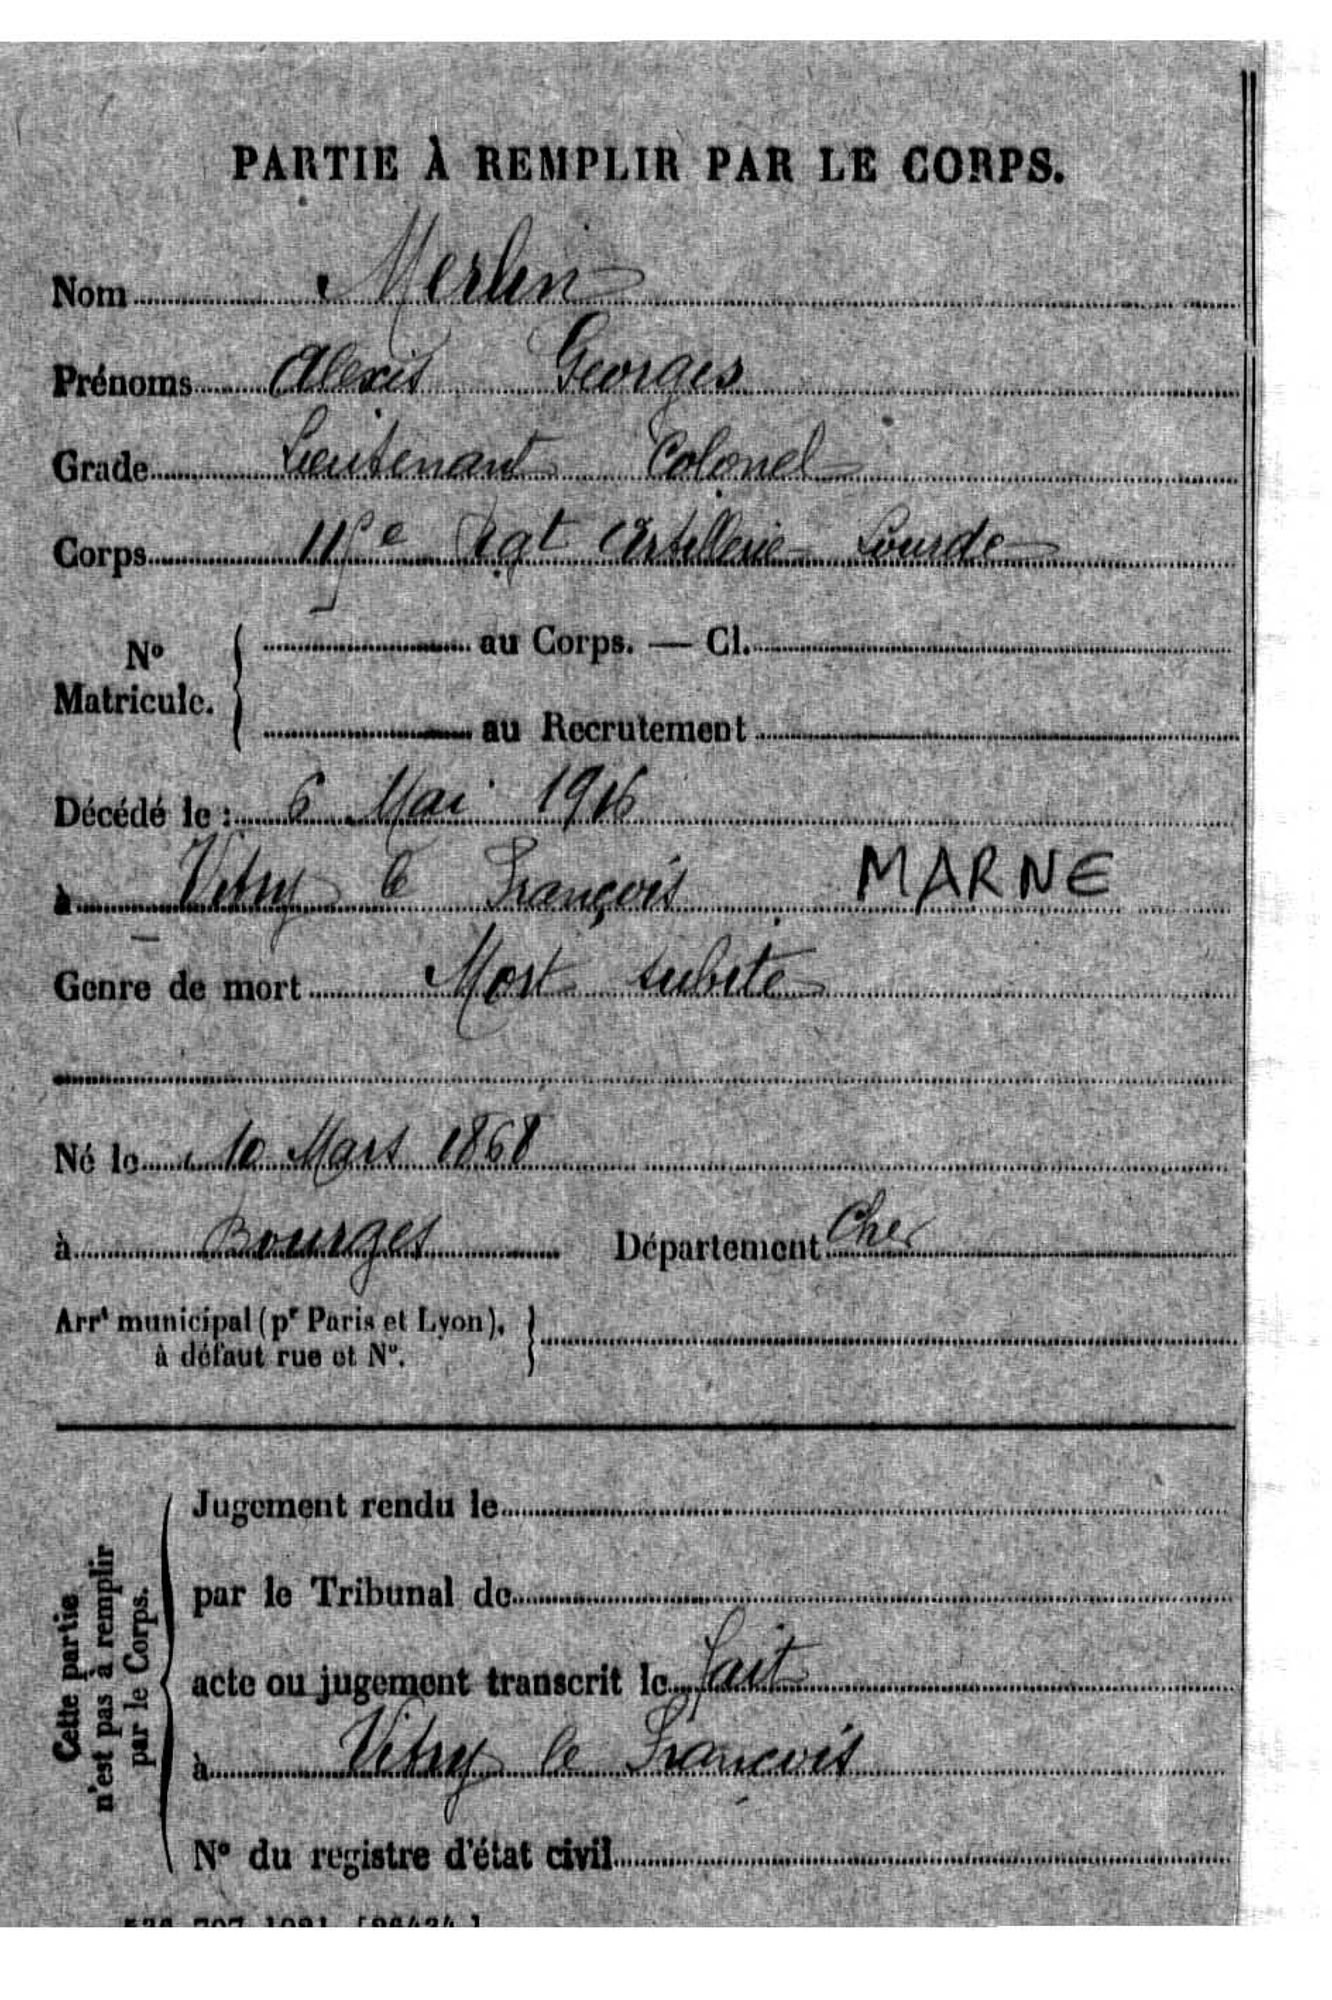 PARTIE À REMPLIR PAR LE CORPS.
Nom Merlin
Prénoms Alexis Georges
Grade Lieutenant Colonel
Corps 115e Rgt Artillerie Lourde
No Matricule. { au Corps. — Cl.
au Recrutement
Décédé le : 6 Mai 1916
à Vitry le François MARNE
Genre de mort Mort subite
Né le 10 Mars 1868
à Bourges Département Cher
Arrt municipal (pr Paris et Lyon), }
à défaut rue et No.
Cette partie
n'est pas à remplir
par le Corps.
Jugement rendu le
par le Tribunal de
acte ou jugement transcrit le fait
à Vitry le François
No du registre d'état civil